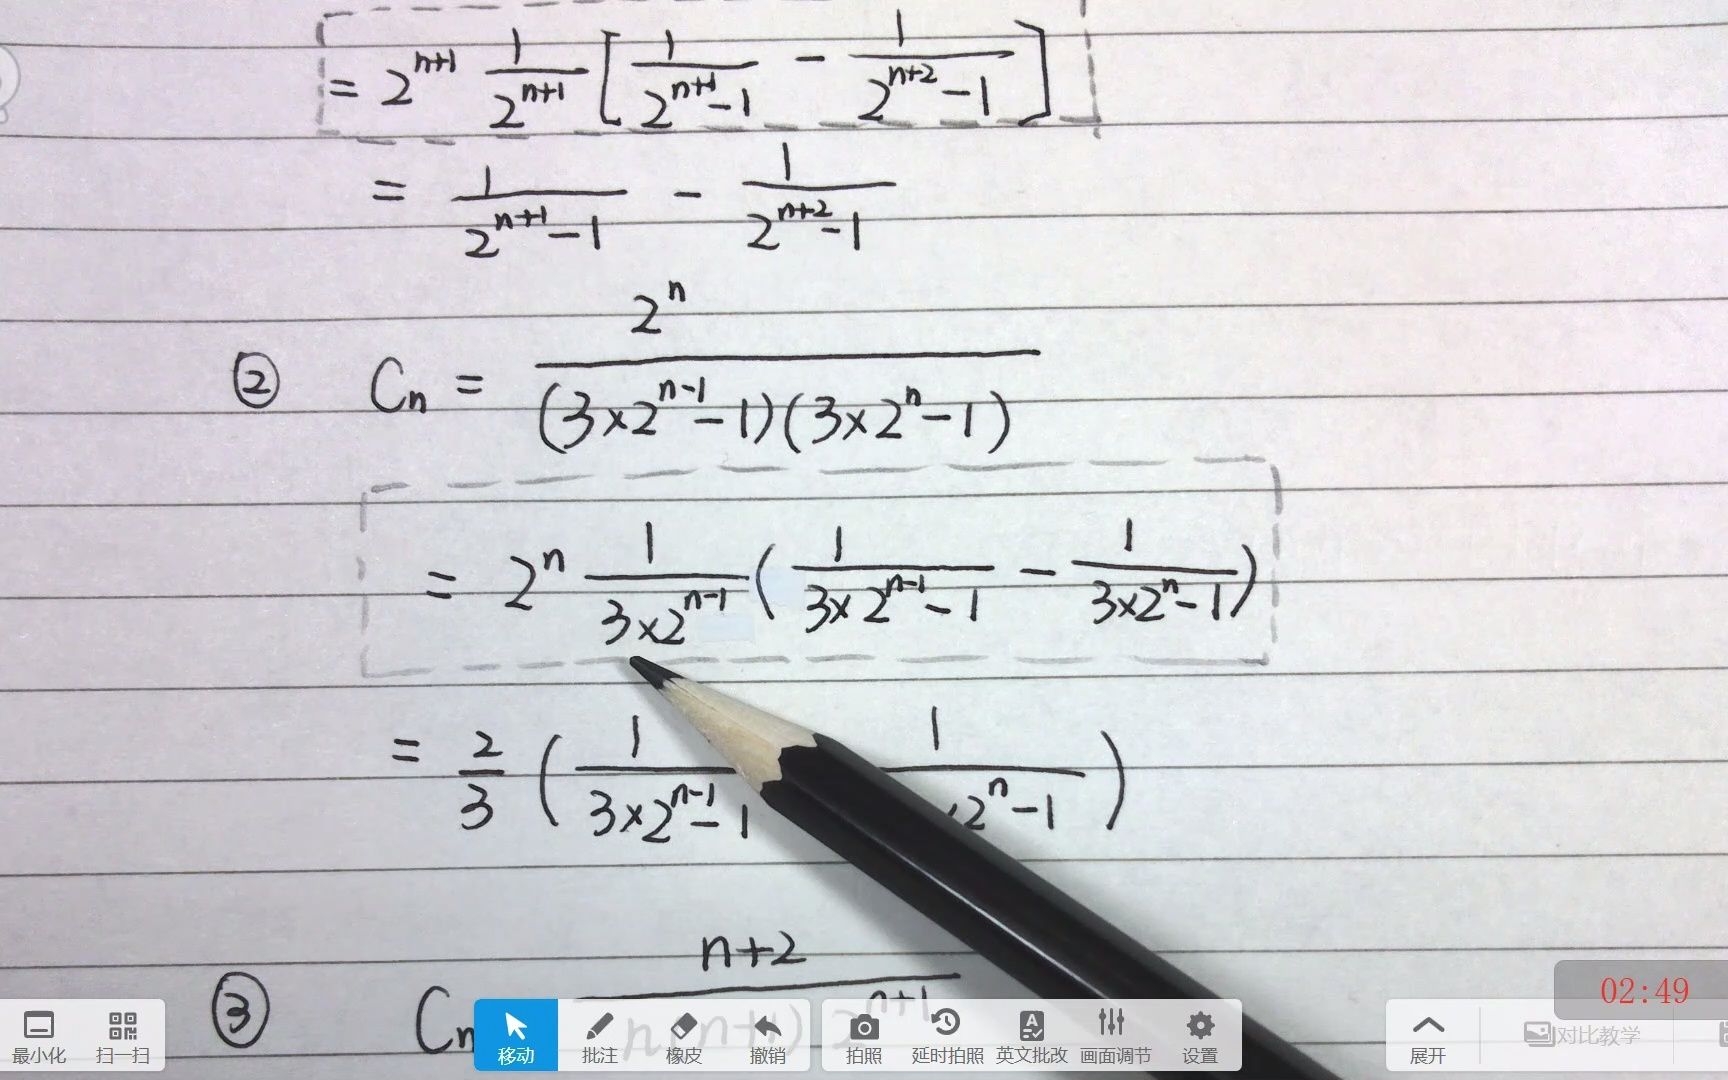 = 2^{n+1} \frac{1}{2^{n+1}} [ \frac{1}{2^{n+1}-1} - \frac{1}{2^{n+2}-1} ]
= \frac{1}{2^{n+1}-1} - \frac{1}{2^{n+2}-1}
② C_n = \frac{2^n}{(3×2^{n-1}-1)(3×2^n-1)}
= 2^n \frac{1}{3×2^{n-1}} ( \frac{1}{3×2^{n-1}-1} - \frac{1}{3×2^n-1} )
= \frac{2}{3} ( \frac{1}{3×2^{n-1}-1} \frac{1}{×2^n-1} )
③ C_n \frac{n+2}{n(n+1) 2^{n+1}}
02:49
最小化 扫一扫 移动 批注 橡皮 撤销 拍照 延时拍照 英文批改 画面调节 设置 展开 对比教学